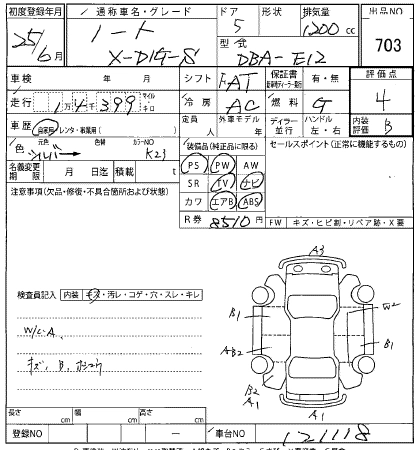 初度登録年月 通称車名・グレード ドア 形状 排気量 出品NO
25年6月 ノート 5 1200cc 703
X-DIG-S 型式 DBA-E12
車検 年 月 シフト FAT 保証書 有・無 評価点
走行 1万4399 マイル キロ 冷房 AC 燃料 G 4
車歴 自家用 レンタ・事業用( ) 定員 人 外車モデル 年 ディーラー 並行 ハンドル 左・右 内装評価 B
色 元色 シルバー 色替 カラーNO K23 装備品(純正品に限る) セールスポイント(正常に機能するもの)
名義変更期限 月 日迄 積載 t PS PW AW
注意事項(欠品・修復・不具合箇所および状態) SR TV ナビ
カワ エアB ABS
R券 8510円 FW キズ・ヒビ割・リペア跡・X要
A3
検査員記入 内装 キズ・汚レ・コゲ・穴・スレ・キレ
B1 W2
W/C-A
AB2 B1
キズ、B、
B2
A1
A1
長さ cm 幅 cm 高さ cm
登録NO ー 車台NO 121118